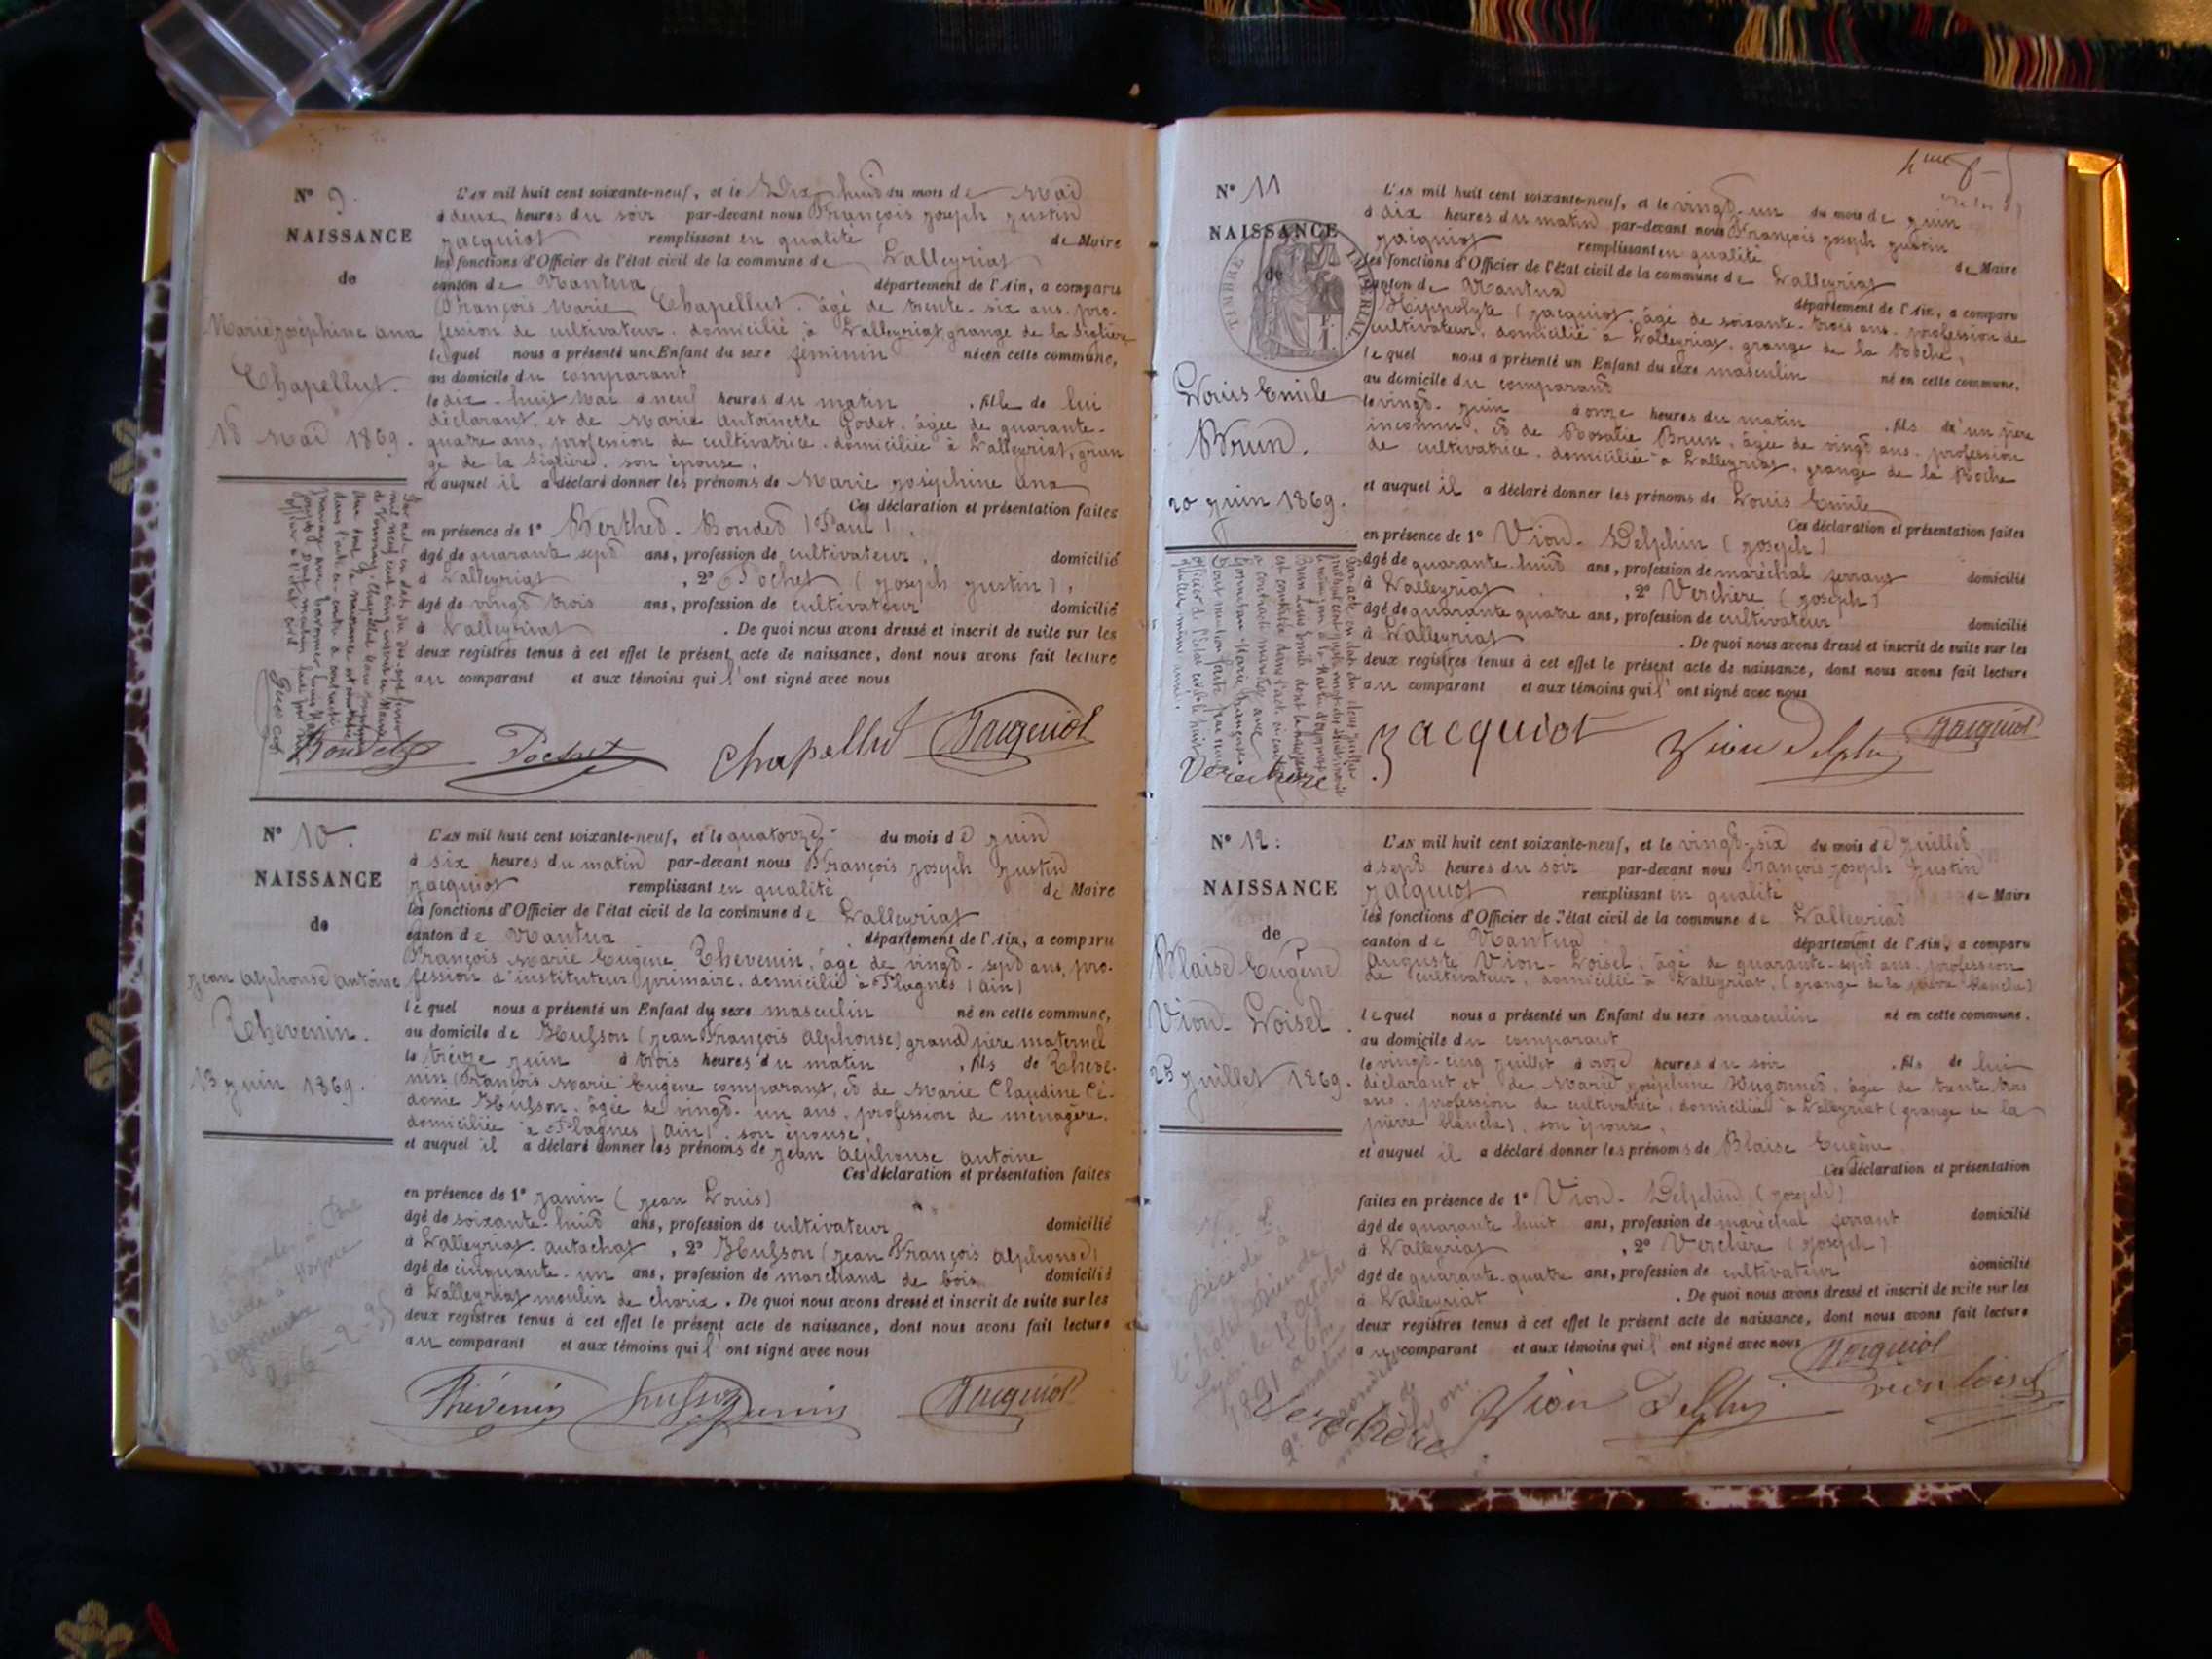 N° 9.
NAISSANCE
de
Marie joséphine ana
Chapellut.
18 Mai 1869.
L'AN mil huit cent soixante-neuf, et le Dix-huid du mois de Maid
à deux heures du soir par-devant nous François joseph justin
jacquiot remplissant en qualité de Maire
les fonctions d'Officier de l'état civil de la commune de Lalleyriat
canton de Nantua département de l'Ain, a comparu
François Marie Chapellut. âgé de trente-six ans. pro-
fession de cultivateur. domicilié à Lalleyriat, grange de la Siglière
lequel nous a présenté une Enfant du sexe feminin née en cette commune,
au domicile du comparant
le dix-huit Mai à neuf heures du matin, fille de lui
déclarant, et de Marie Antoinette Godet. âgée de quarante-
quatre ans, profession de cultivatrice. domiciliée à Lalleyriat, gran
ge de la Siglière. son épouse.
et auquel il a déclaré donner les prénoms de Marie joséphine ana
Ces déclaration et présentation faites
en présence de 1° Berthed-Bonded (Paul),
âgé de quarante sepd ans, profession de cultivateur, domicilié
à Lalleyriat, 2° Pochet (joseph justin),
âgé de vingd trois ans, profession de cultivateur domicilié
à Lalleyriat. De quoi nous avons dressé et inscrit de suite sur les
deux registres tenus à cet effet le présent acte de naissance, dont nous avons fait lecture
au comparant et aux témoins qui l'ont signé avec nous
Bondet Pochet Chapellud Jacquiot
N° 10.
NAISSANCE
de
jean alphonse antoine
Thevenin.
13 juin 1869.
L'AN mil huit cent soixante-neuf, et le quatorze du mois de juin
à six heures du matin par-devant nous François joseph justin
jacquiot remplissant en qualité de Maire
les fonctions d'Officier de l'état civil de la commune de Lalleyriat
canton de Nantua département de l'Ain, a comparu
François Marie Eugène Thevenin, âgé de vingd-sepd ans, pro-
fession d'instituteur primaire. domicilié à Plagnes (ain)
lequel nous a présenté un Enfant du sexe masculin né en cette commune,
au domicile de Hugson (jean François alphonse) grand père maternel
le treize juin à trois heures du matin, fils de Theve-
nin (François Marie Eugène comparant, et de Marie Claudine Cé-
dome Hugson. âgée de vingd-un ans, profession de ménagère.
domiciliée à Plagnes (ain). son épouse.
et auquel il a déclaré donner les prénoms de jean alphonse antoine
Ces déclaration et présentation faites
en présence de 1° janin (jean Louis)
âgé de soixante-huid ans, profession de cultivateur domicilié
à Lalleyriat. autachat, 2° Hugson (jean François alphonse)
âgé de cinquante-un ans, profession de marchand de bois domicilié
à Lalleyriat moulin de charix. De quoi nous avons dressé et inscrit de suite sur les
deux registres tenus à cet effet le présent acte de naissance, dont nous avons fait lecture
au comparant et aux témoins qui l'ont signé avec nous
Thévenin Janin Jacquiot
N° 11
NAISSANCE
de
TIMBRE IMPERIAL
Louis Emile
Brun.
20 juin 1869.
L'AN mil huit cent soixante-neuf, et le vingd-un du mois de juin
à dix heures du matin par-devant nous François joseph justin
jacquiot remplissant en qualité de Maire
les fonctions d'Officier de l'état civil de la commune de Lalleyriat
canton de Nantua département de l'Ain, a comparu
Hippolyte jacquiot, âgé de soixante-trois ans. profession de
cultivateur, domicilié à Lalleyriat, grange de la Roche,
lequel nous a présenté un Enfant du sexe masculin né en cette commune,
au domicile du comparand
le vingd-juin à onze heures du matin, fils d'un père
inconnu, et de Rosalie Brun, âgée de vingd ans. profession
de cultivatrice. domiciliée à Lalleyriat, grange de la Roche
et auquel il a déclaré donner les prénoms de Louis Emile
Ces déclaration et présentation faites
en présence de 1° Viond-Delphin (joseph)
âgé de quarante-huid ans, profession de maréchal ferrant domicilié
à Lalleyriat, 2° Verchère (joseph)
âgé de quarante quatre ans, profession de cultivateur domicilié
à Lalleyriat. De quoi nous avons dressé et inscrit de suite sur les
deux registres tenus à cet effet le présent acte de naissance, dont nous avons fait lecture
au comparant et aux témoins qui l'ont signé avec nous
Verechere Jacquiot Vion delphin Jacquiot
N° 12:
NAISSANCE
de
Blaise Eugène
Viond-Loisel.
25 juillet 1869.
L'AN mil huit cent soixante-neuf, et le vingd-six du mois de juilled
à sepd heures du soir par-devant nous François joseph justin
jacquiot remplissant en qualité de Maire
les fonctions d'Officier de l'état civil de la commune de Lalleyriad
canton de Nantua département de l'Ain, a comparu
auguste Vion-Loisel, âgé de quarante-sepd ans. profession
de cultivateur, domicilié à Lalleyriat, (grange de la pierre blanche)
lequel nous a présenté un Enfant du sexe masculin né en cette commune.
au domicile du comparant
le vingd-cinq juillet à onze heures du soir, fils de lui
déclarant et de Marie joséphine Hugonned, âgé de trente trois
ans. profession de cultivatrice, domiciliée à Lalleyriat (grange de la
pierre blanche), son épouse,
et auquel il a déclaré donner les prénoms de Blaise Eugène
Ces déclaration et présentation
faites en présence de 1° Viond-Delphin (joseph)
âgé de quarante huit ans, profession de maréchal ferrant domicilié
à Lalleyriat, 2° Verchère (joseph)
âgé de quarante-quatre ans, profession de cultivateur domicilié
à Lalleyriat. De quoi nous avons dressé et inscrit de suite sur les
deux registres tenus à cet effet le présent acte de naissance, dont nous avons fait lecture
au comparant et aux témoins qui l'ont signé avec nous Jacquiot
Verechère Vion Delphin vion loisel